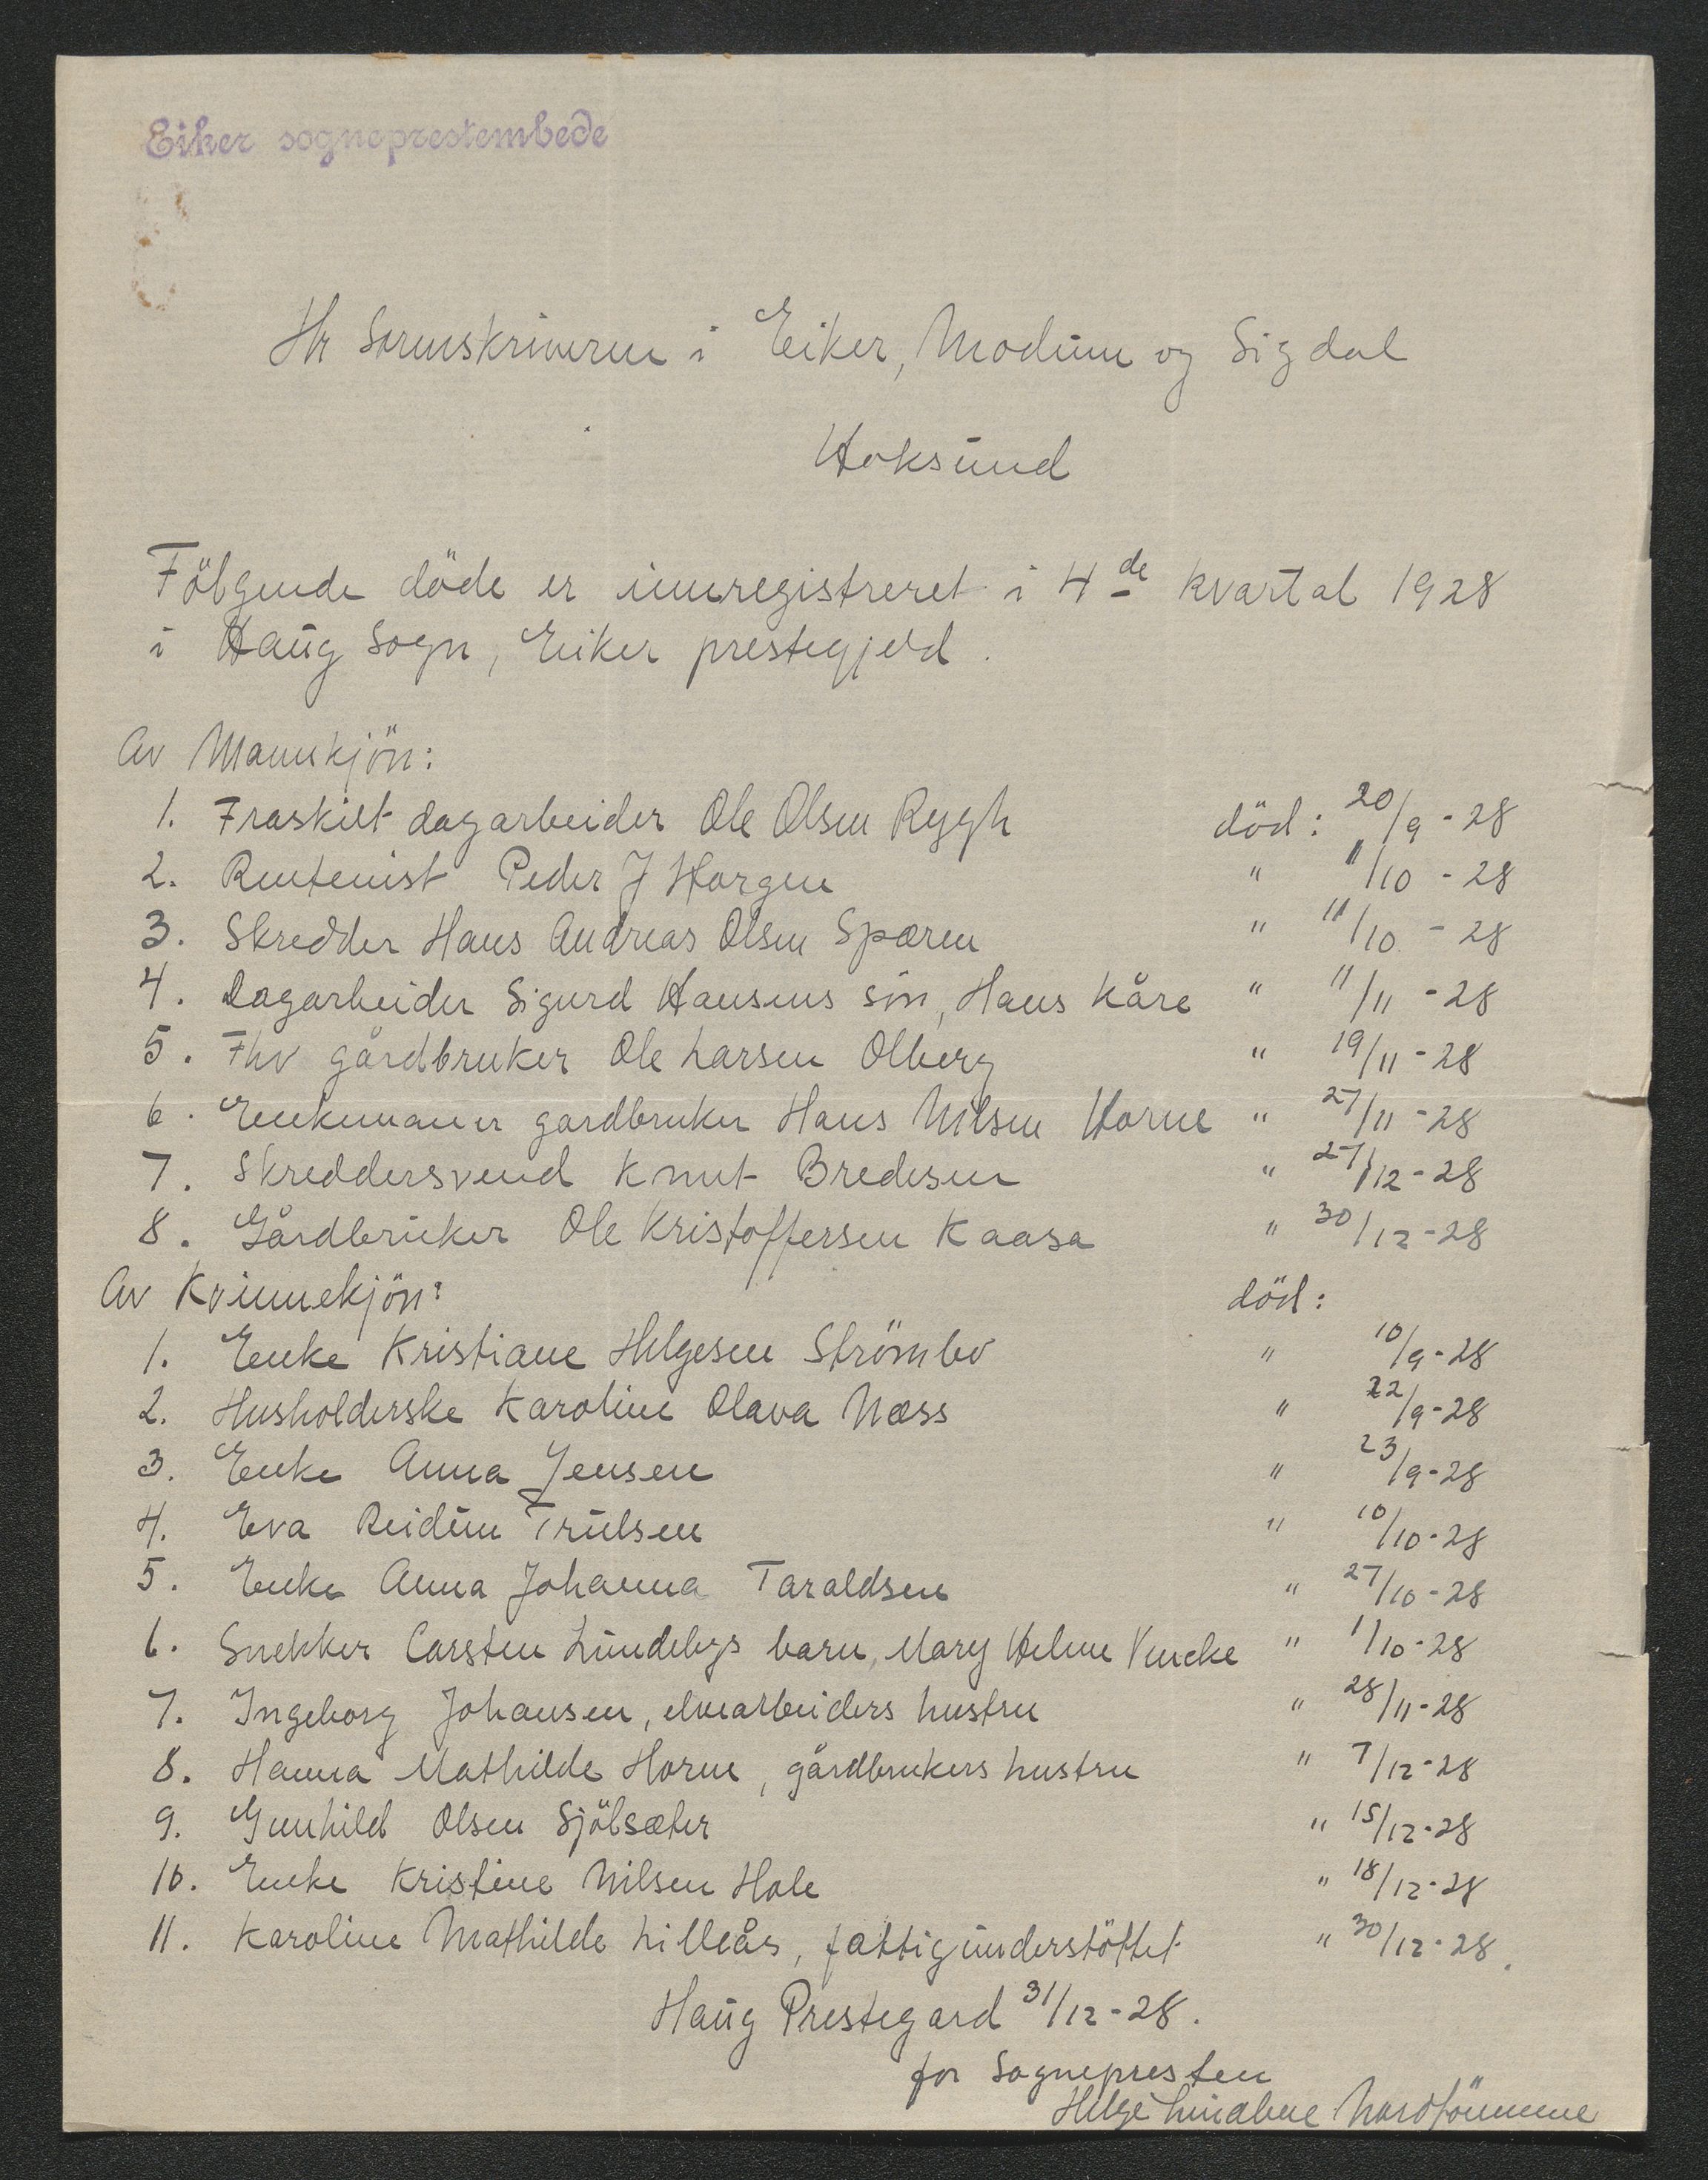 Eiker sogneprestembede
Hr Sorenskriveren i Eiker, Modum og Sigdal
Hoksund
Fölgende döde er innregistreret i 4de kvartal 1928
i Haug Sogn, Eiker prestegjeld.
Av Mannkjön:
1. Fraskilt dagarbeider Ole Olsen Rygh död: 20/9 - 28
2. Rentenist Peder J Horgen " 11/10 - 28
3. Skredder Hans Andreas Olsen Sparen " 11/10 - 28
4. Dagarbeider Sigurd Hansens sön, Hans Kåre " 11/11 - 28
5. Fhv gårdbruker Ole Larsen Olberg " 19/11 - 28
6. Enkemann gardbruker Hans Nilsen Horne " 27/11 - 28
7. Skreddersvend Knut Bredesen " 27/12 - 28
8. Gårdbruker Ole Kristoffersen Kaasa " 30/12 - 28
Av Kvinnekjön: död:
1. Enke Kristiane Helgesen Strömbo " 10/9 - 28
2. Husholderske Karoline Olava Næss " 22/9 - 28
3. Enke Anna Jensen " 23/9 - 28
4. Eva Reidun Trulsen " 10/10 - 28
5. Enke Anna Johanna Taraldsen " 27/10 - 28
6. Snekker Carsten Lundebys barn, Mary Helene " 1/10 - 28
7. Ingeborg Johansen, elvearbeiders hustru " 28/11 - 28
8. Hanna Mathilde Horne, gårdbrukers hustru " 7/12 - 28
9. Gunhild Olsen Sjölsæter " 15/12 - 28
10. Enke Kristine Nilsen Hole " 18/12 - 28
11. Karoline Mathilde Lilleås, fattigunderstöttet " 30/12 - 28.
Haug Prestegard 31/12 - 28.
for Sognepresten
Helge